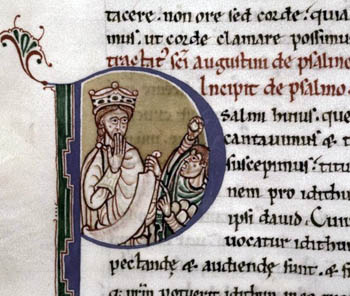 tacere. non ore sed corde. quia
mus. ut corde clamare possimu
tractat' sci augustini de psalmo
Incipit de psalmo.
Psalmi huius. que
cantauimus &
suscepimus. titu
nem pro idithu
ipsi dauid.
uocatur idithu
pectande & audiende sunt. &
potuerit idithu